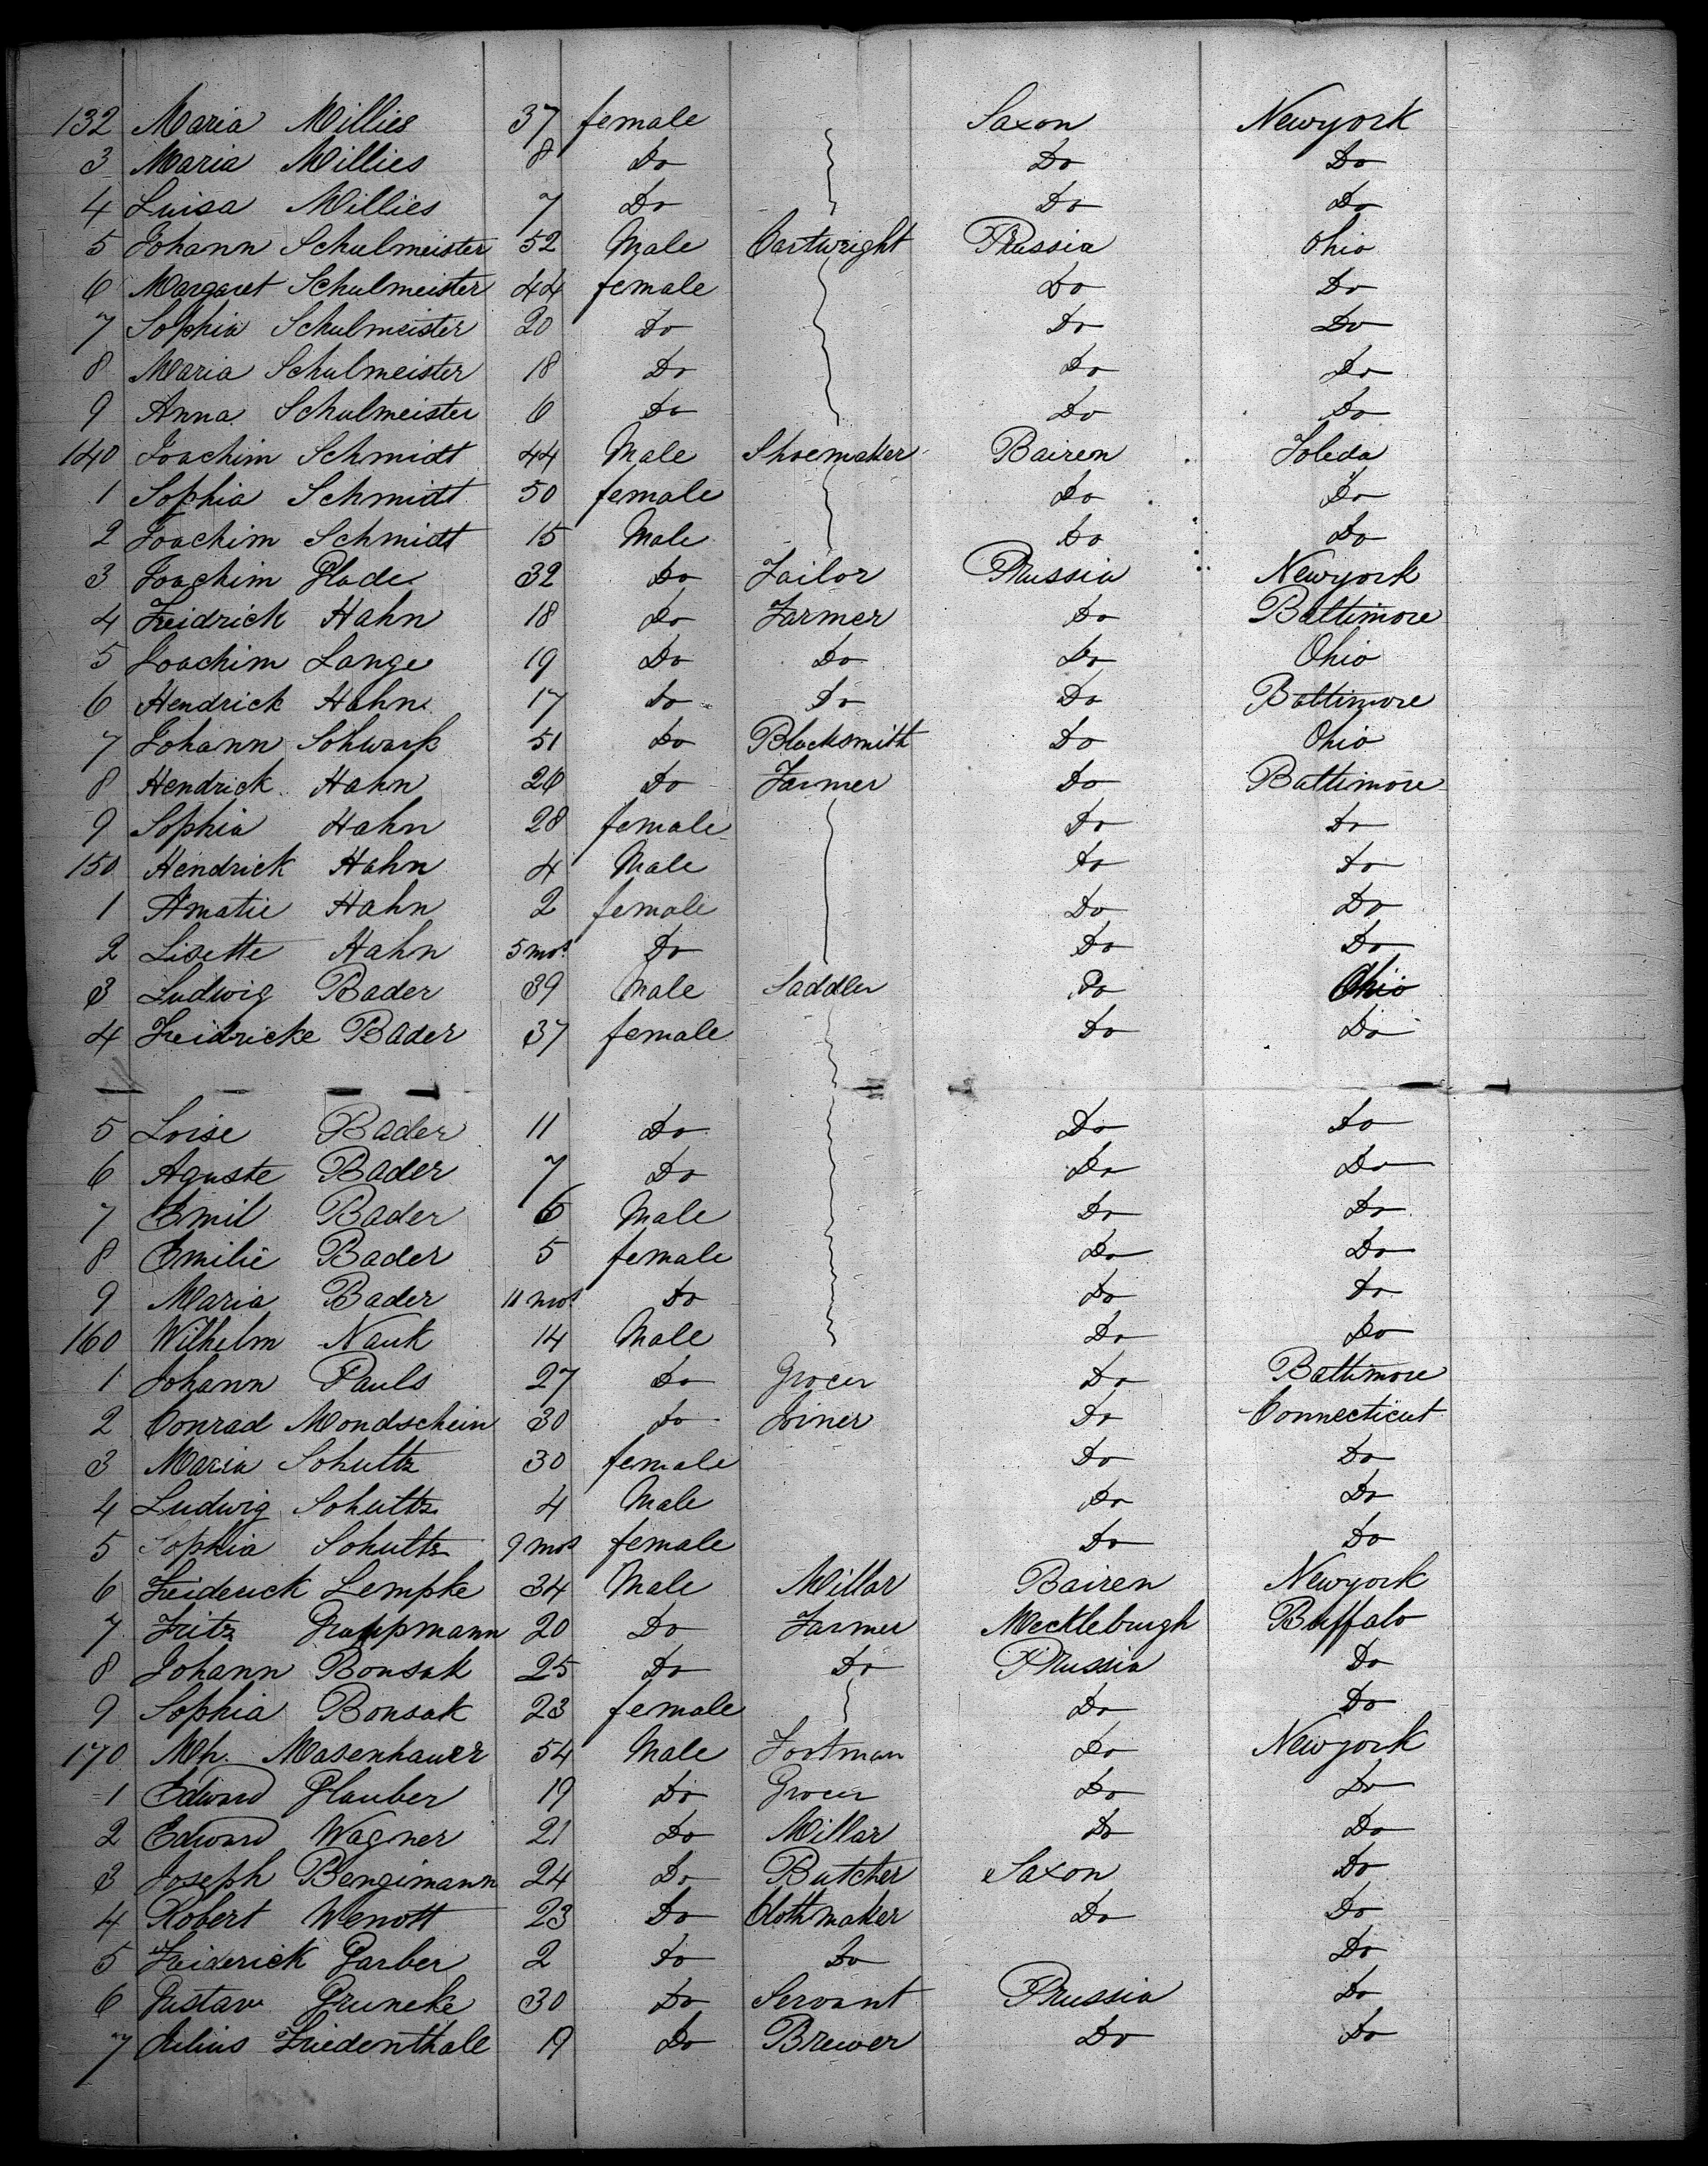 132 Maria Millies 37 female Saxon Newyork
3 Maria Millies 8 Do Do Do
4 Luisa Millies 7 Do Do Do
5 Johann Schulmeister 52 Male Cartwright Prussia Ohio
6 Margaret Schulmeister 44 female Do Do
7 Sophia Schulmeister 20 Do Do Do
8 Maria Schulmeister 18 Do Do Do
9 Anna Schulmeister 6 Do Do Do
140 Joachim Schmidt 44 Male Shoemaker Bairen Toledo
1 Sophia Schmidt 50 female Do Do
2 Joachim Schmidt 15 Male Do Do
3 Joachim Glade 32 Do Tailor Prussia Newyork
4 Freidrick Hahn 18 Do Farmer Do Baltimore
5 Joachim Lange 19 Do Do Do Ohio
6 Hendrick Hahn 17 Do Do Do Baltimore
7 Johann 51 Do Blacksmith Do Ohio
8 Hendrick Hahn 26 Do Farmer Do Baltimore
9 Sophia Hahn 28 female Do Do
150 Hendrick Hahn 4 Male Do Do
1 Amatie Hahn 2 female Do Do
2 Lisette Hahn 5 mos Do Do Do
3 Ludwig Bader 39 Male Saddler Do Ohio
4 Freidricke Bader 37 female Do Do
5 Loise Bader 11 Do Do Do
6 Aguste Bader 7 Do Do Do
7 Emil Bader 6 Male Do Do
8 Emilie Bader 5 female Do Do
9 Maria Bader 11 mos Do Do Do
160 Wilhelm Nauk 14 Male Do Do
1 Johann Pauls 27 Do Grocer Do Baltimore
2 Conrad Mondschein 30 Do Joiner Do Connecticut
3 Maria Schultz 30 female Do Do
4 Ludwig Schultz 4 Male Do Do
5 Sophia Schultz 9 mos female Do Do
6 Freiderick Lempke 34 Male Millar Bairen Newyork
7 Fritz 20 Do Farmer Meckleburgh Buffalo
8 Johann Bonsak 25 Do Do Prussia Do
9 Sophia Bonsak 23 female Do Do
170 Mh. Masenhauer 54 Male Footman Do Newyork
1 Edward Glauber 19 Do Grocer Do Do
2 Edward Wagner 21 Do Millar Do Do
3 Joseph Bengimann 24 Do Butcher Saxon Do
4 Robert Wenott 23 Do Clothmaker Do Do
5 Freiderick Garber 2 Do Do Do
6 Gustav Gruneke 30 Do Servant Prussia Do
7 Julius Friedenthale 19 Do Brewer Do Do